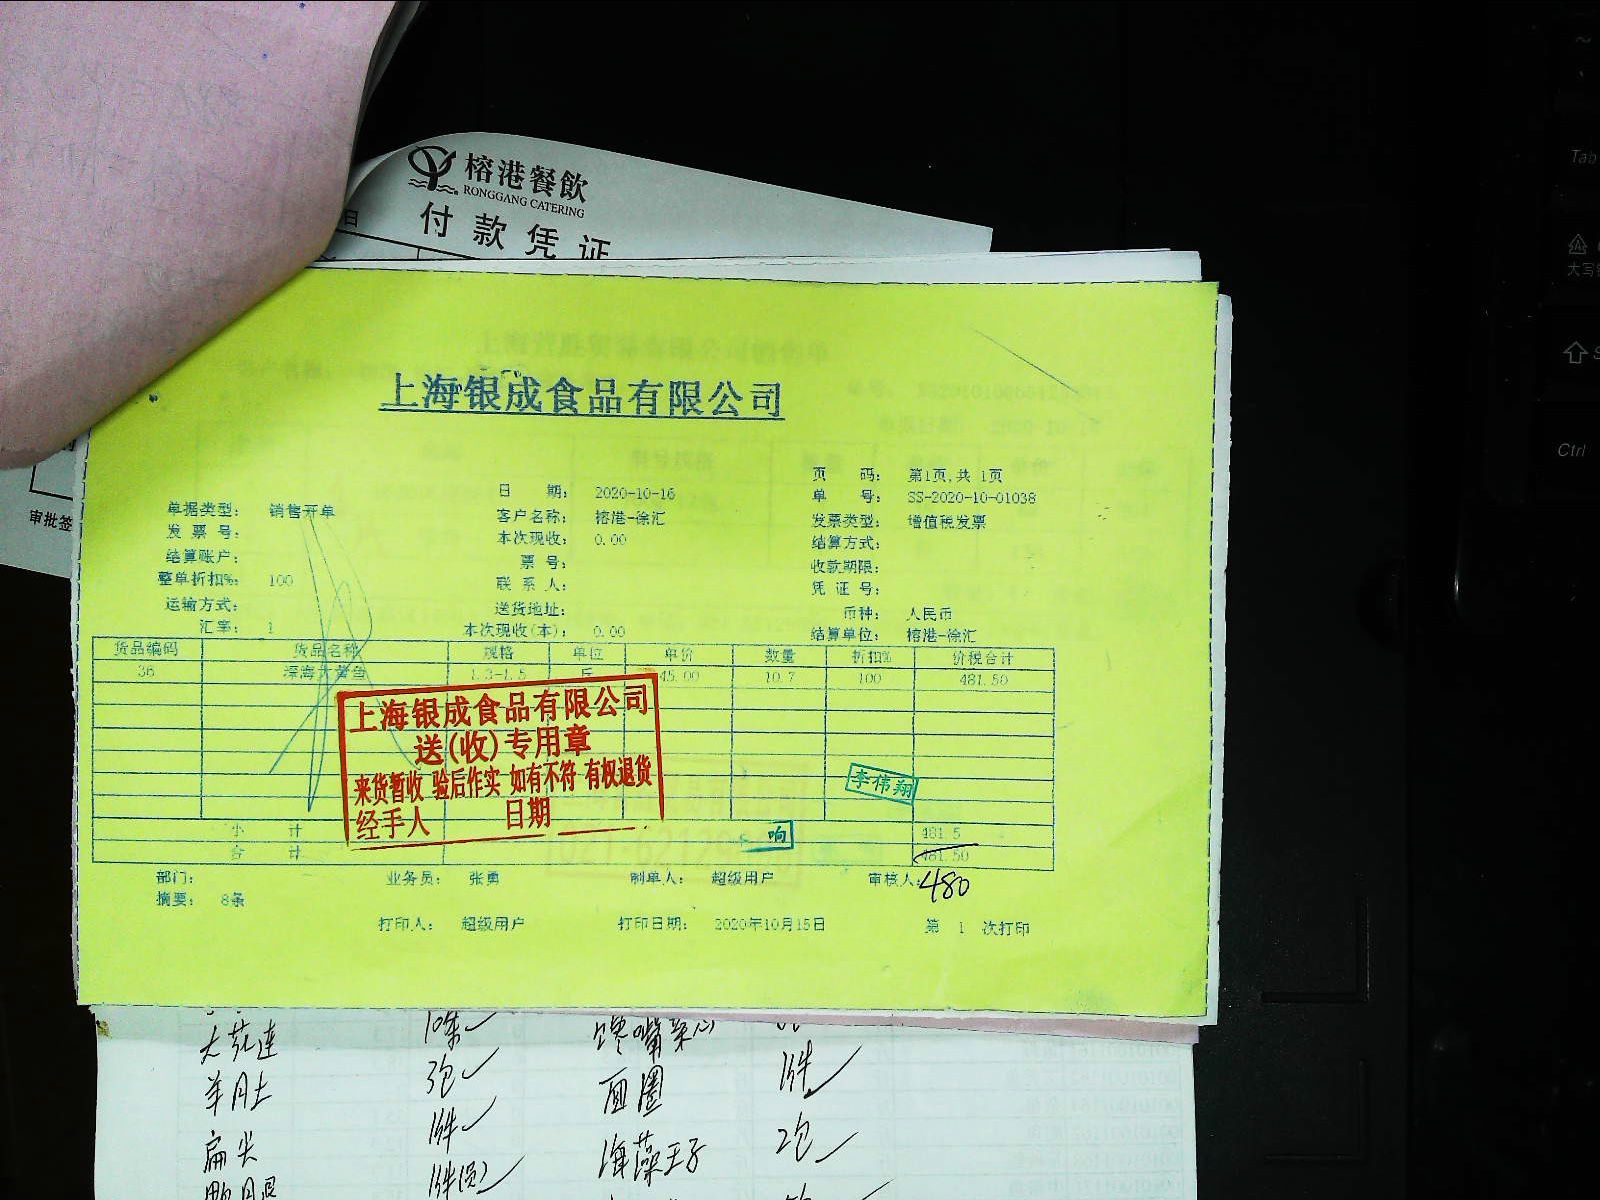 榕港餐飲
RONGGANG CATERING
付款凭证
日
审批签
上海银成食品有限公司
页 码: 第1页,共 1页
日 期: 2020-10-16 单 号: SS-2020-10-01038
单据类型: 销售开单 客户名称: 榕港-徐汇 发票类型: 增值税发票
发 票 号: 本次现收: 0.00 结算方式:
结算账户: 票 号: 收款期限:
整单折扣%: 100 联 系 人: 凭 证 号:
运输方式: 送货地址: 币种: 人民币
汇率: 1 本次现收(本): 0.00 结算单位: 榕港-徐汇
货品编码 货品名称 规格 单位 单价 数量 折扣% 价税合计
36 深海大黄鱼 1.3-1.5 斤 45.00 10.7 100 481.50
上海银成食品有限公司
送(收)专用章
来货暂收 验后作实 如有不符 有权退货
经手人 日期
李伟翔
响
小 计 481.5
合 计 481.50
480
部门: 业务员: 张勇 制单人: 超级用户 审核人:
摘要: 8条
打印人: 超级用户 打印日期: 2020年10月15日 第 1 次打印
大花连 10条 馋嘴菜心
羊月土 3包 面圈 1件
扁尖 1件 海藻王子 2包
Tab
大写
Ctrl